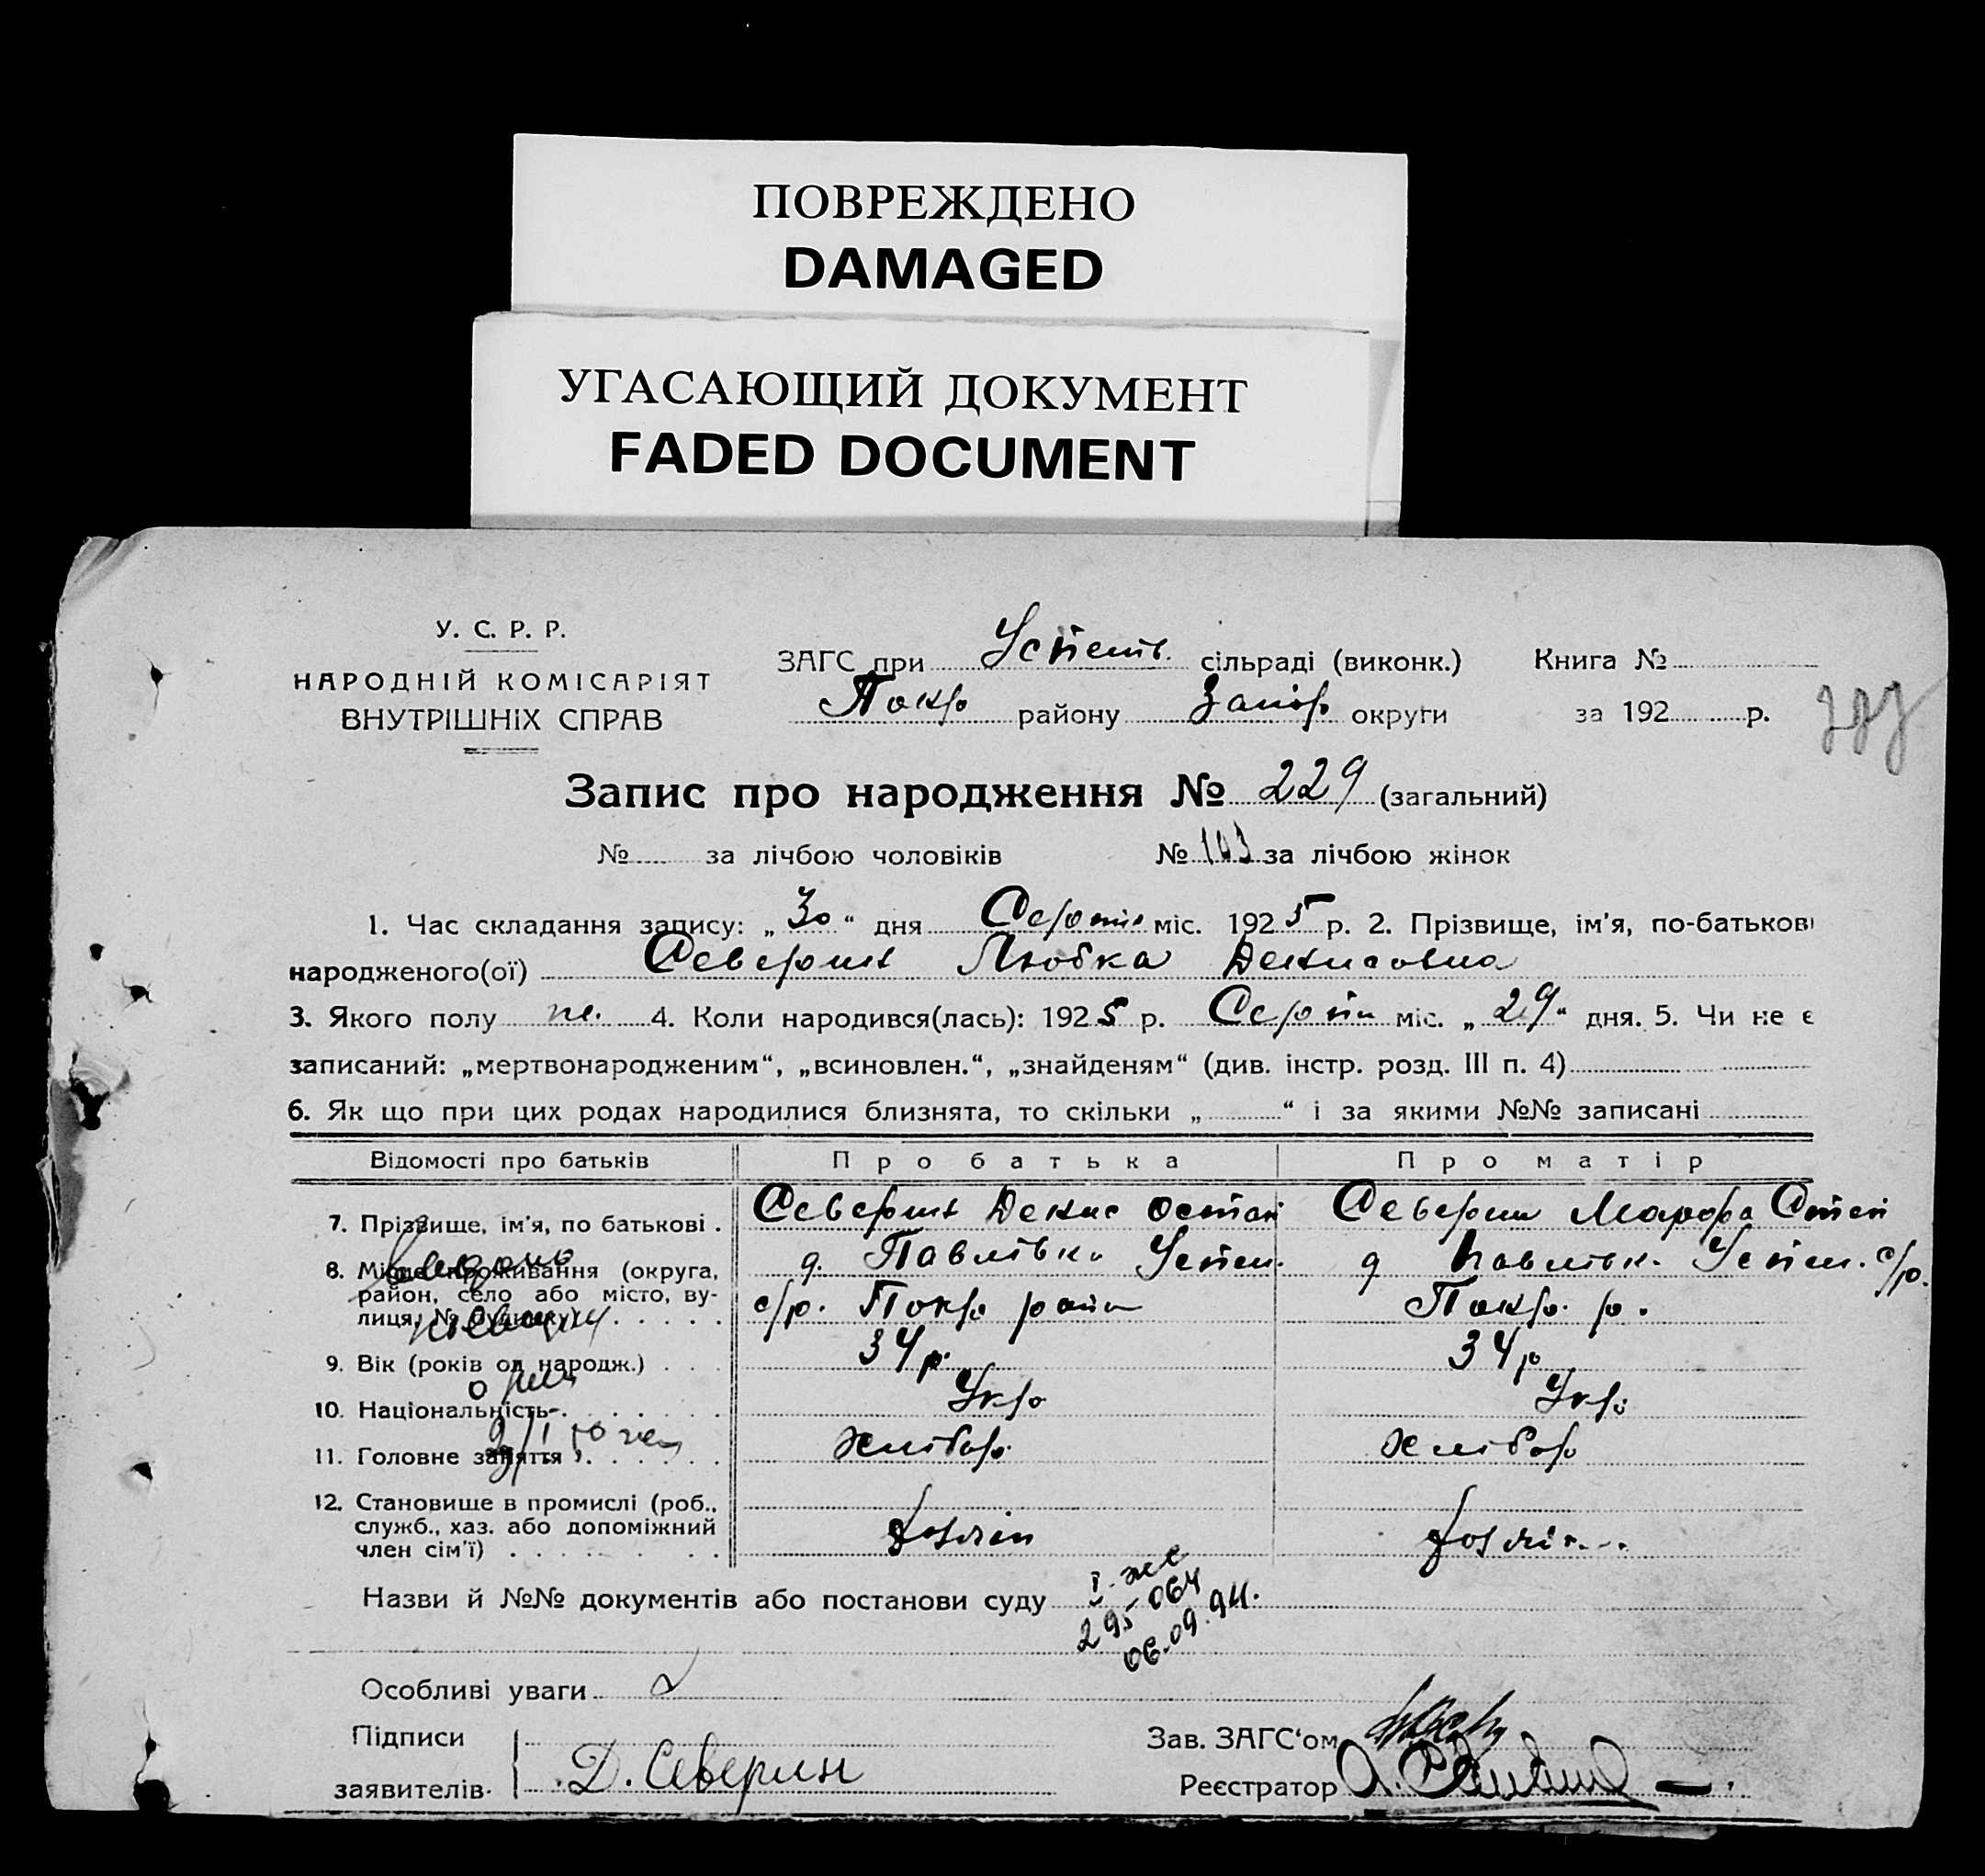 ПОВРЕЖДЕНО
DAMAGED
УГАСАЮЩИЙ ДОКУМЕНТ
FADED DOCUMENT
У. С. Р. Р.
НАРОДНІЙ КОМІСАРІЯТ
ВНУТРІШНІХ СПРАВ
ЗАГС при Успенів. сільраді (виконк.)
Покр району Запор округи
Книга №
за 192 р.
Запис про народження № 229 (загальний)
№ за лічбою чоловіків № 103 за лічбою жінок
1. Час складання запису: „30“ дня Серпня міс. 1925 р. 2. Прізвище, ім'я, по-батькові
народженого(ої) Северин Любка Денисовна
3. Якого полу ж. 4. Коли народився(лась): 1925 р. Серпня міс. „29“ дня. 5. Чи не є
записаний: „мертвонародженим“, „всиновлен.“, „знайденям“ (див. інстр. розд. III п. 4)
6. Як що при цих родах народилися близнята, то скільки „ “ і за якими №№ записані
Відомості про батьків Про батька Про матір
7. Прізвище, ім'я, по батькові . Северин Денис Остап Северин Марфа Степ
8. Місце проживання (округа, район, село або місто, вулиця, № будинку) д. Павлівка Успен. д Павлівк. Успен. с/р.
с/р. Покр район Покр. р.
9. Вік (років од народж.) 34 р. 34 р
10. Національність Укр Укр
11. Головне заняття хлібор. хлібор
12. Становище в промислі (роб., служб., хаз. або допоміжний член сім'ї)
Назви й №№ документів або постанови суду
295-064
06.09.94.
Особливі уваги
Підписи
заявителів Д. Северин
Зав. ЗАГС‘ом
Реєстратор